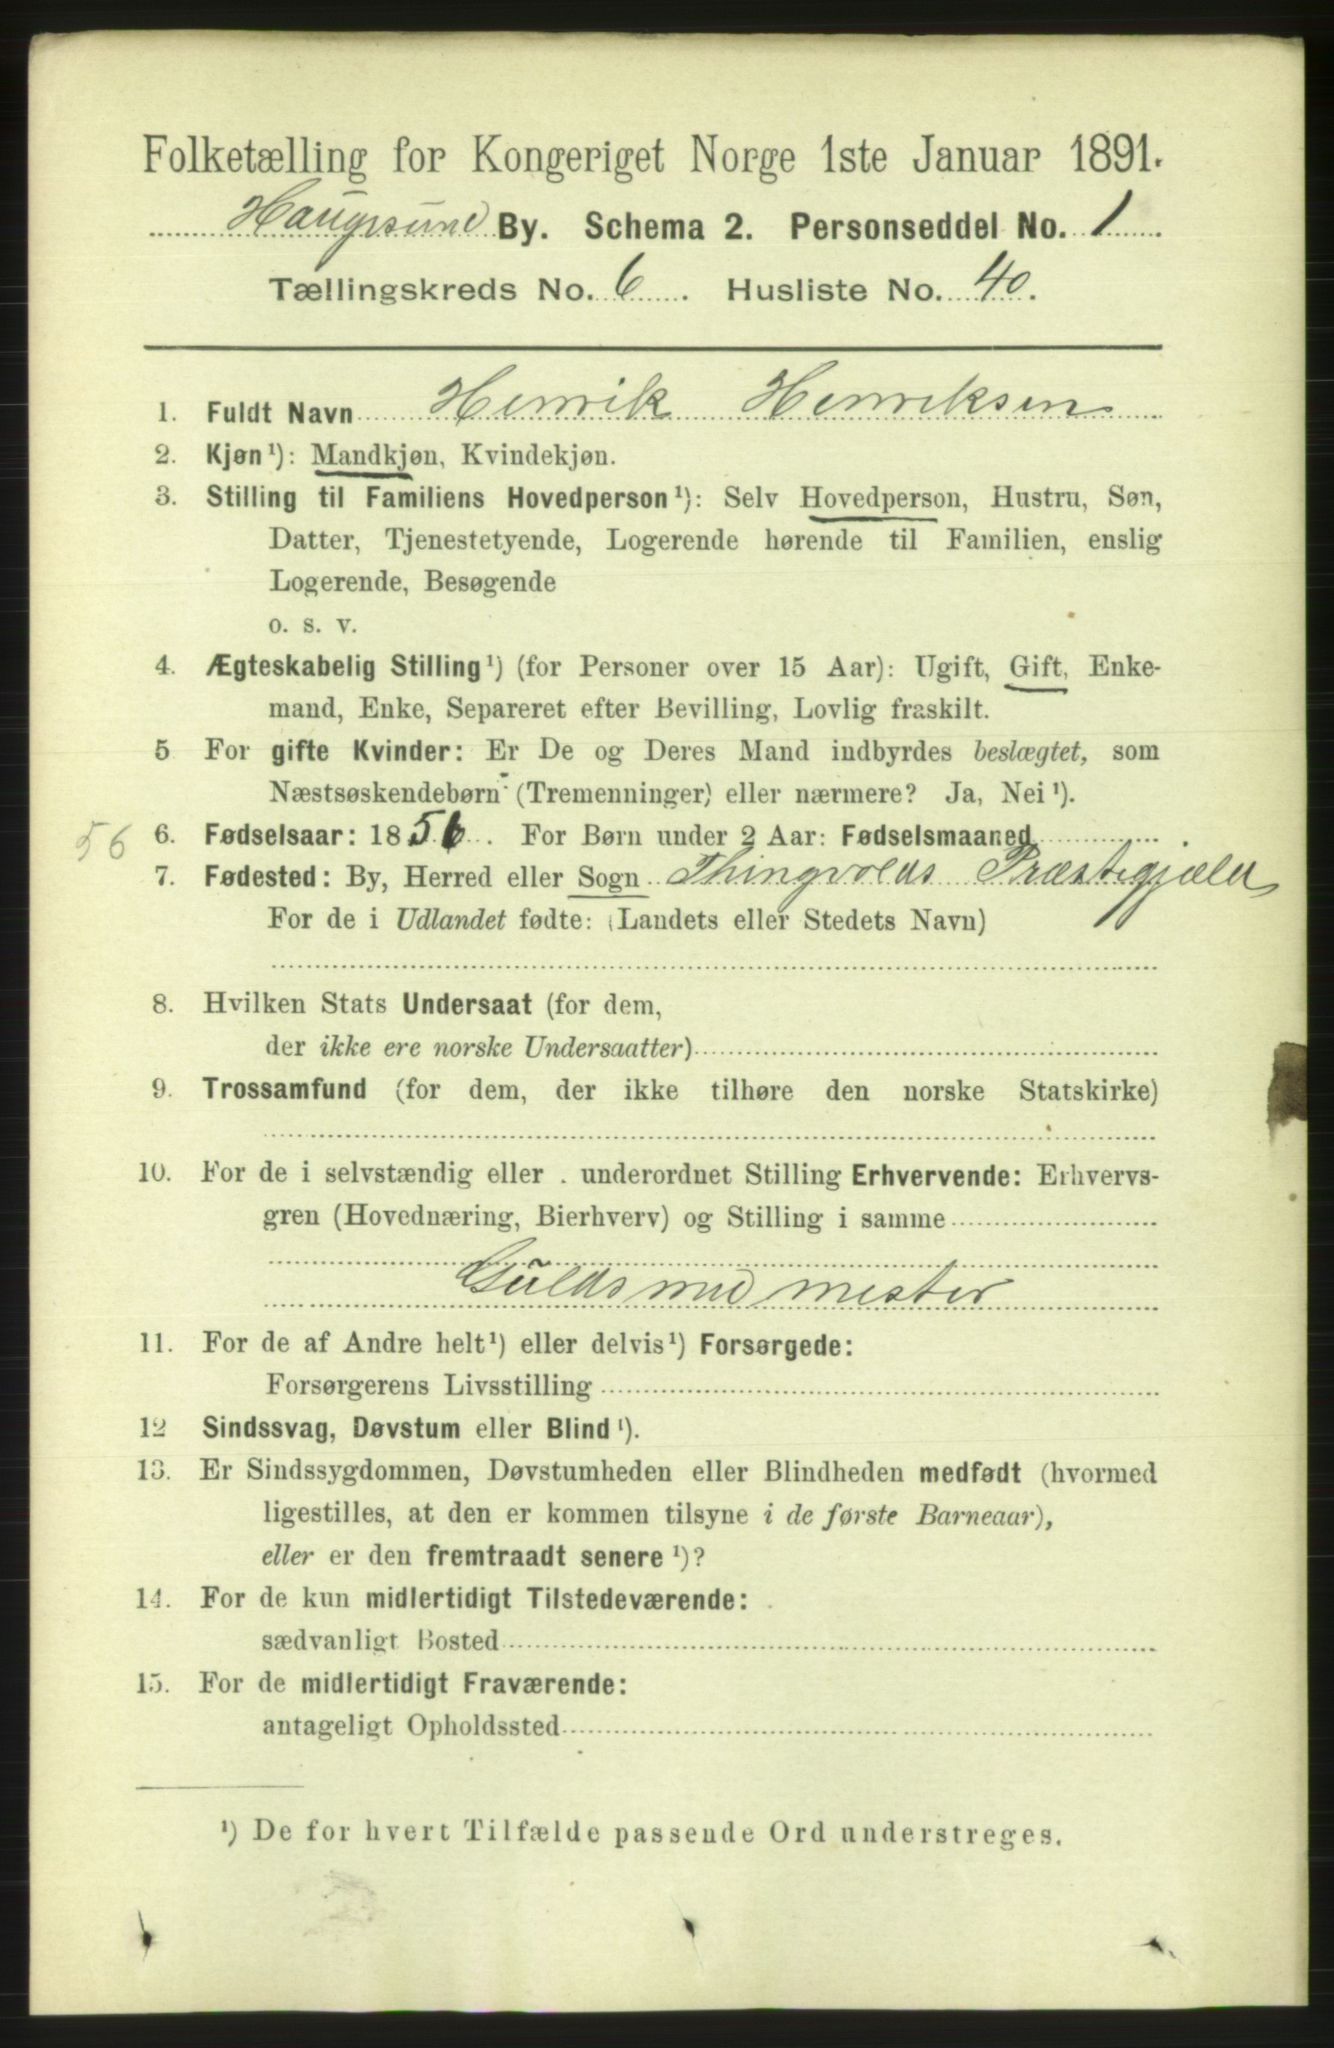 Folketælling for Kongeriget Norge 1ste Januar 1891.
Haugesund By. Schema 2. Personseddel No. 1
Tællingskreds No. 6. Husliste No. 40.
1. Fuldt Navn Henrik Henriksen
2. Kjøn¹): Mandkjøn, Kvindekjøn.
3. Stilling til Familiens Hovedperson¹): Selv Hovedperson, Hustru, Søn,
Datter, Tjenestetyende, Logerende hørende til Familien, enslig
Logerende, Besøgende
o. s. v.
4. Ægteskabelig Stilling¹) (for Personer over 15 Aar): Ugift, Gift, Enke-
mand, Enke, Separeret efter Bevilling, Lovlig fraskilt.
5 For gifte Kvinder: Er De og Deres Mand indbyrdes beslægtet, som
Næstsøskendebørn (Tremenninger) eller nærmere? Ja, Nei¹).
56 6. Fødselsaar: 1856. For Børn under 2 Aar: Fødselsmaaned
7. Fødested: By, Herred eller Sogn Thingvolds Præstegjæld
For de i Udlandet fødte: (Landets eller Stedets Navn)
8. Hvilken Stats Undersaat (for dem,
der ikke ere norske Undersaatter)
9. Trossamfund (for dem, der ikke tilhøre den norske Statskirke)
10. For de i selvstændig eller . underordnet Stilling Erhvervende: Erhvervs-
gren (Hovednæring, Bierhverv) og Stilling i samme
Guldsmedmester
11. For de af Andre helt¹) eller delvis¹) Forsørgede:
Forsørgerens Livsstilling
12 Sindssvag, Døvstum eller Blind¹).
13. Er Sindssygdommen, Døvstumheden eller Blindheden medfødt (hvormed
ligestilles, at den er kommen tilsyne i de første Barneaar),
eller er den fremtraadt senere¹)?
14. For de kun midlertidigt Tilstedeværende:
sædvanligt Bosted
15. For de midlertidigt Fraværende:
antageligt Opholdssted
¹) De for hvert Tilfælde passende Ord understreges.